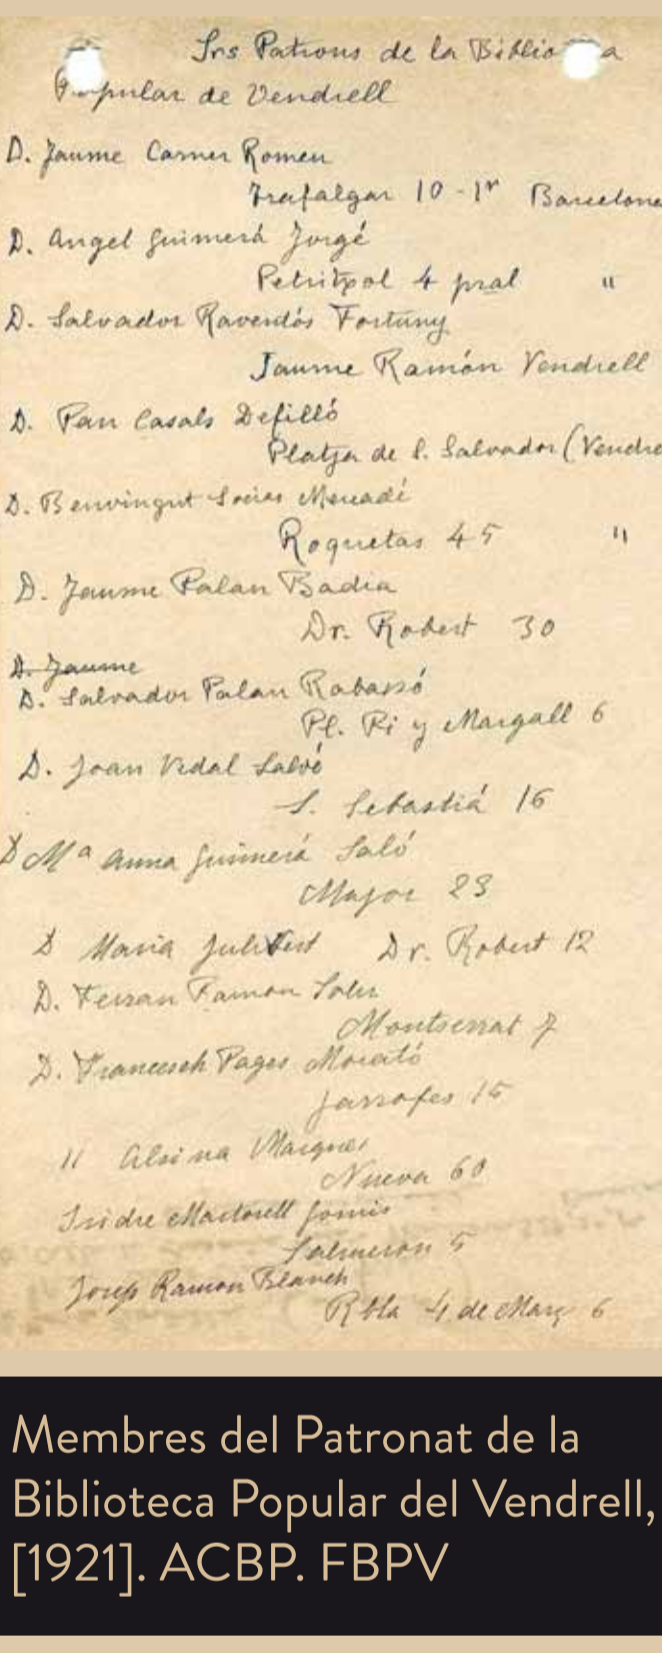 Srs Patrons de la Biblio a
Popular de Vendrell
D. Jaume Carner Romeu
Trafalgar 10 - 1r Barcelona
D. Angel Guimerá Jorgé
Petritxol 4 pral "
D. Salvador Raventós Fortuny
Jaume Ramón Vendrell
D. Pau Casals Defilló
Platja de S. Salvador (Vendre
D. Benvingut Socias Mercadé
Roquetas 45 "
D. Jaume Palau Badia
Dr. Robert 30
D. Jaume
D. Salvador Palau Rabassó
Pl. Pi y Margall 6
D. Joan Vidal Salvó
S. Sebastiá 16
D Mª Anna Guimerá Saló
Major 23
D Maria Julivert Dr. Robert 12
D. Ferran Ramon Soler
Montserrat 7
D. Francesch Pages Morató
15
" Alsina Marques
Nueva 60
Isidre Martorell Gomis
Salmeron 5
Josep Ramon Blanch
Rbla 4 de Març 6
Membres del Patronat de la
Biblioteca Popular del Vendrell,
[1921]. ACBP. FBPV